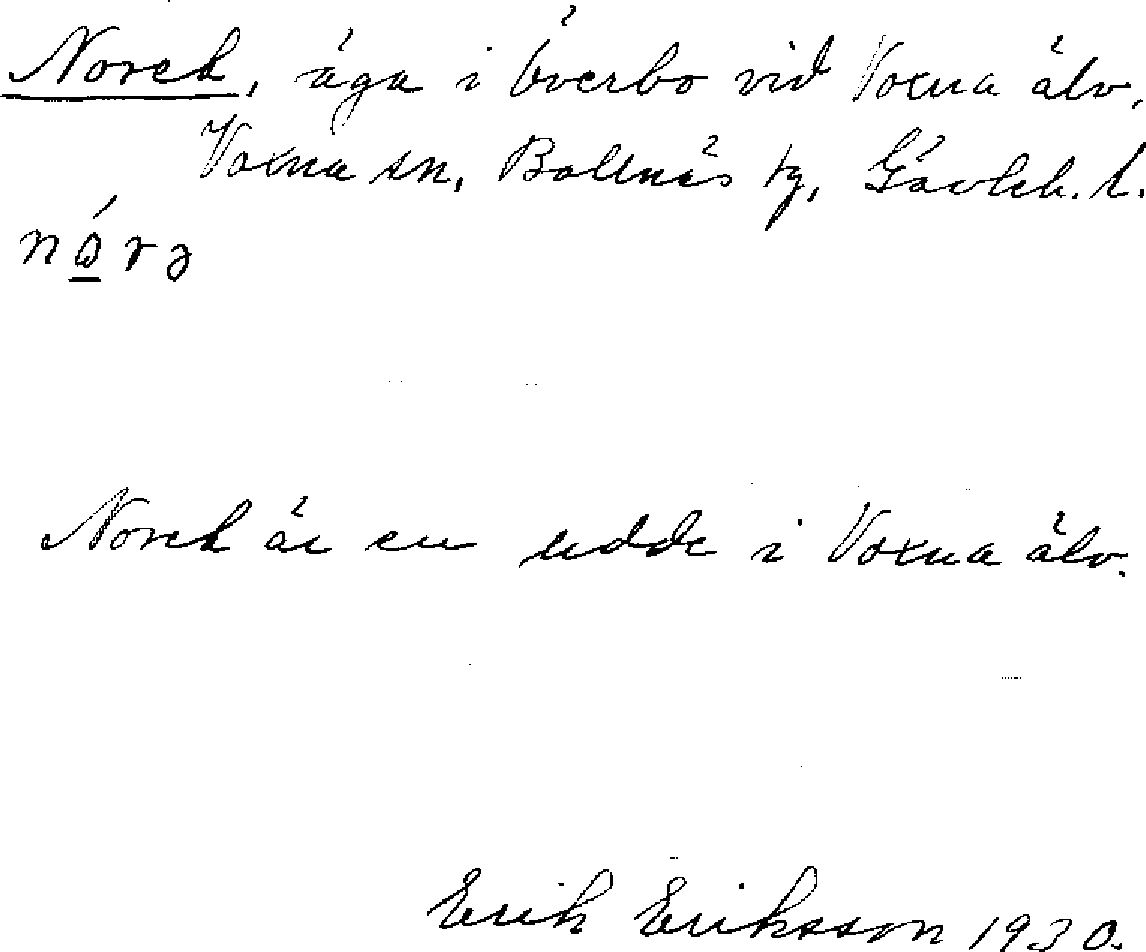 Noret, äga i Överbo vid Voxna älv,
Voxna sn, Bollnäs tg, Gävleb. l.
nọ́rə
Noret är en udde i Voxna älv.
Erik Eriksson 1930.